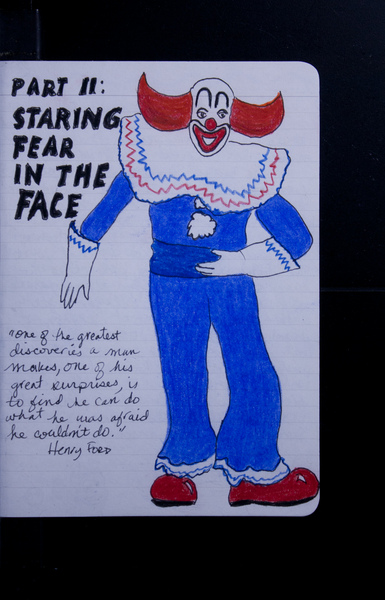 PART II:
STARING
FEAR
IN THE
FACE
"One of the greatest
discoveries a man
makes, one of his
great surprises, is
to find he can do
what he was afraid
he couldn't do."
Henry Ford